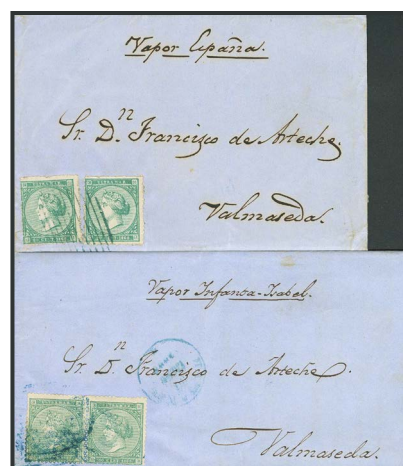 Vapor España.
Sr. Dⁿ Francisco de Arteche.
Valmaseda.
Vapor Infanta-Isabel.
Sr. Dⁿ Francisco de Arteche.
Valmaseda.